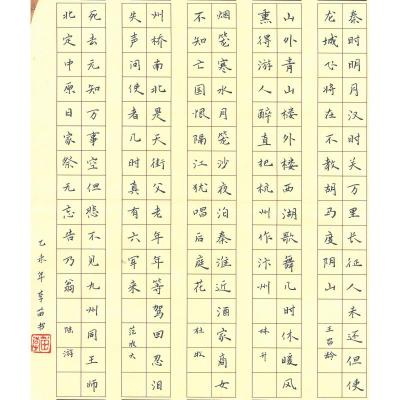 秦时明月汉时关万里长征人未还但使
龙城飞将在不教胡马度阴山 王昌龄
山外青山楼外楼西湖歌舞几时休暖风
熏得游人醉直把杭州作汴州 林升
烟笼寒水月笼沙夜泊秦淮近酒家商女
不知亡国恨隔江犹唱后庭花 杜牧
州桥南北是天街父老年年等驾回忍泪
失声问使者几时真有六军来 范成大
死去元知万事空但悲不见九州同王师
北定中原日家祭无忘告乃翁 陆游
乙未年李苗书